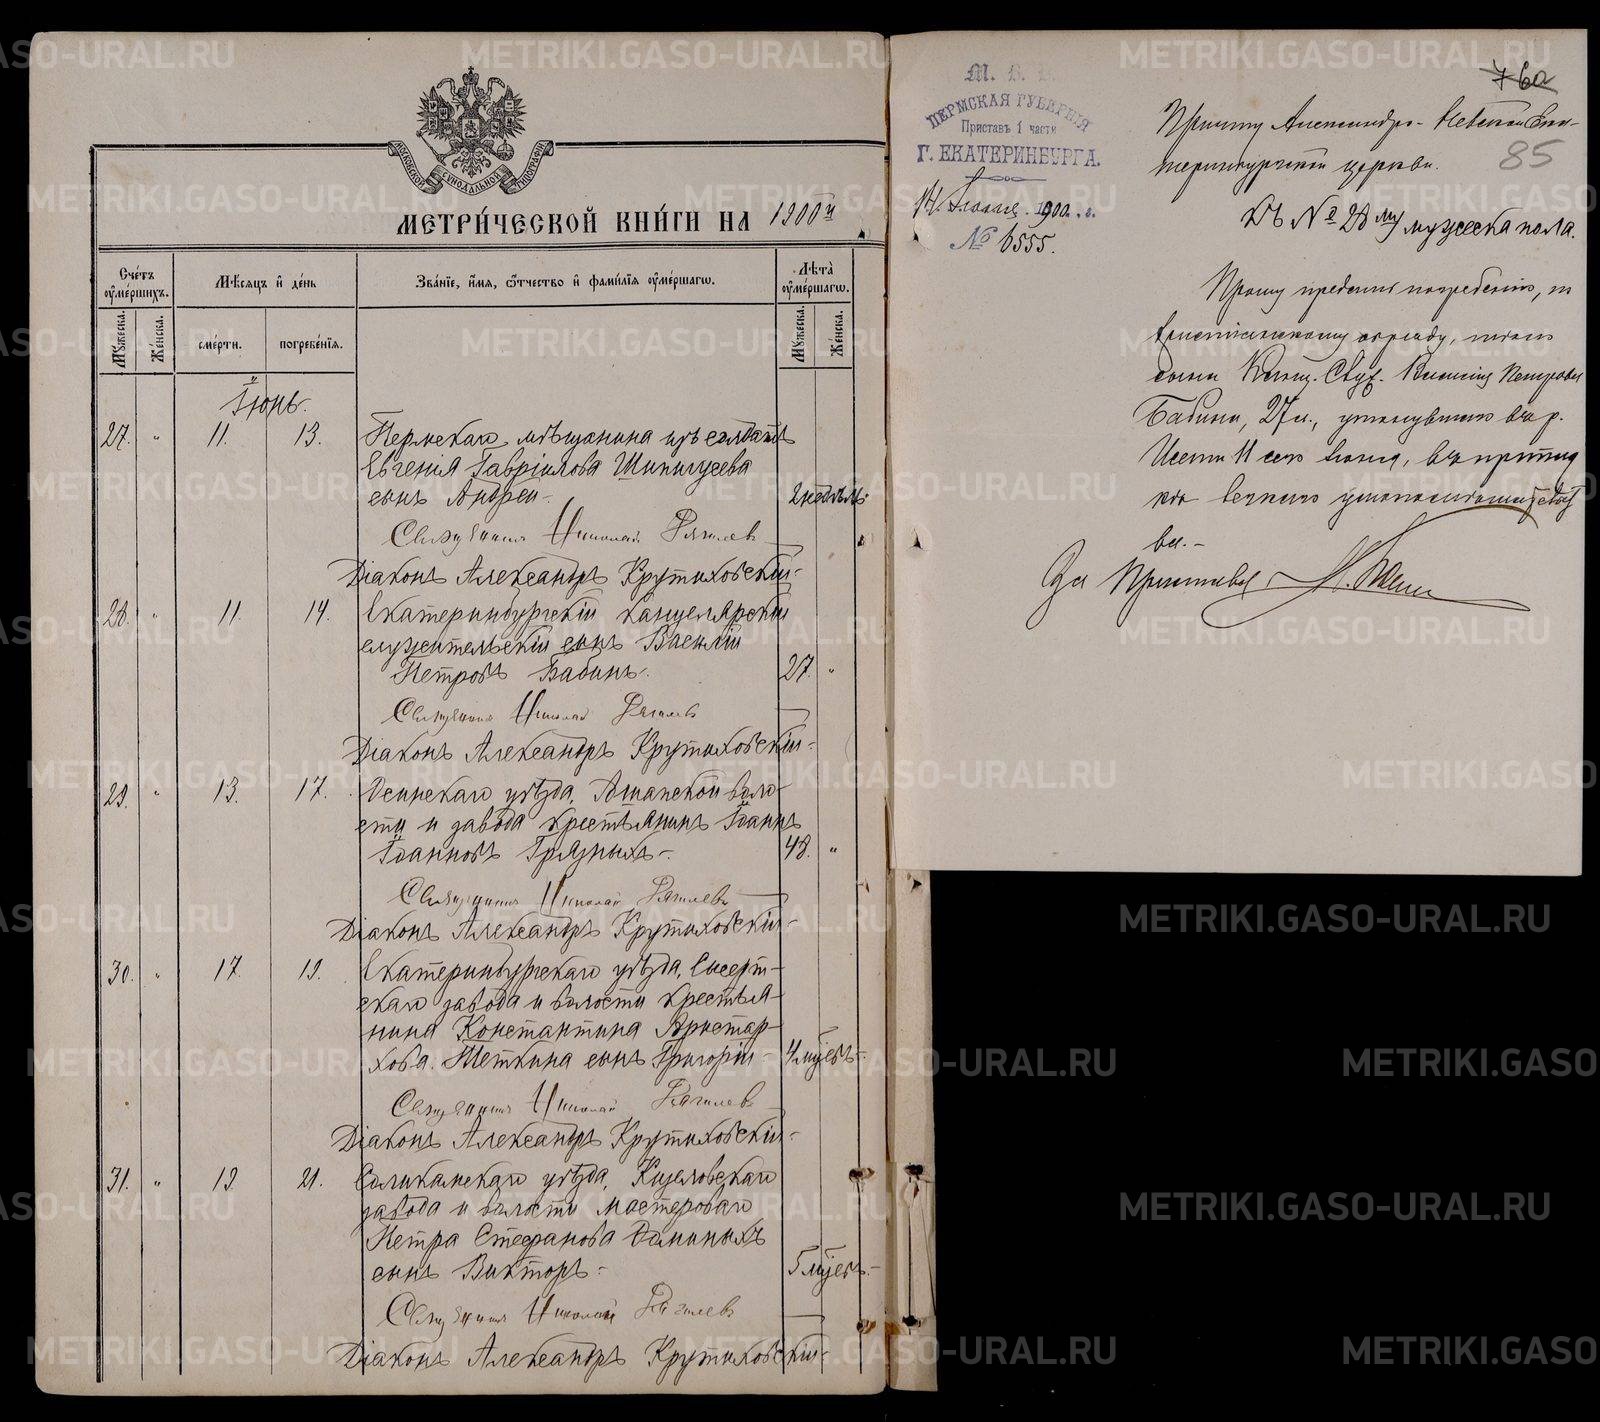 МОСКОВСКОЙ СѴНОДАЛЬНОЙ ТИПОГРАФІИ
МЕТРИ́ЧЕСКОЙ КНИ́ГИ НА 1900й
Сче́тъ ᲂу҆ме́ршихъ.
Мѣ́сяцъ и҆ де́нь
Зва́нїе, и҆́мя, ѻ҆́тчество и҆ фами́лїя ᲂу҆ме́ршагѡ.
Лѣта̀ ᲂу҆ме́ршагѡ.
Мꙋ́жеска.
Же́нска.
сме́рти.
погребе́нїѧ.
Мꙋ́жеска.
Же́нска.
Іюнь.
27. " 11. 13. Пермскаго мѣщанина изъ солдатъ
Евгенія Гавріилова Шипигусева
сынъ Андрей 2 недѣль
Священникъ Николай
Діаконъ Александръ Крутиховскій
28. " 11. 14. Екатеринбургскій канцелярскій
служительскій сынъ Василій
Петровъ Бабинъ. 27. "
Священникъ Николай
Діаконъ Александръ Крутиховскій
29. " 13. 17. Осинскаго уѣзда, Ашапской воло-
сти и завода крестьянинъ Іоаннъ
Іоанновъ Грязныхъ. 48. "
Священникъ Николай
Діаконъ Александръ Крутиховскій
30. " 17. 19. Екатеринбургскаго уѣзда, Сысерт-
скаго завода и волости крестья-
нина Константина Аристар-
хова Щеткина сынъ Григорій 4 мѣс.
Священникъ Николай
Діаконъ Александръ Крутиховскій
31. " 19. 21. Соликамскаго уѣзда, Кизеловскаго
завода и волости мастероваго
Петра Стефанова
сынъ Викторъ 5 мѣс.
Священникъ Николай
Діаконъ Александръ Крутиховскій
М. В. Д.
ПЕРМСКАЯ ГУБЕРНІЯ
Приставъ 1 части
Г. ЕКАТЕРИНБУРГА.
14 Іюня 1900 г.
№ 6555.
76а
85
Причту Александро-Невской Ека-
теринбургской церкви.
Къ № 28му мужеска пола.
Прошу предать погребенію, по
христіанскому обряду, тѣло
сына Канц. Служ. Василія Петрова
Бабина, 27 л., утонувшаго въ р.
Исети 11 сего Іюня, въ припад
кѣ
ва.-
За Пристава
METRIKI.GASO-URAL.RU